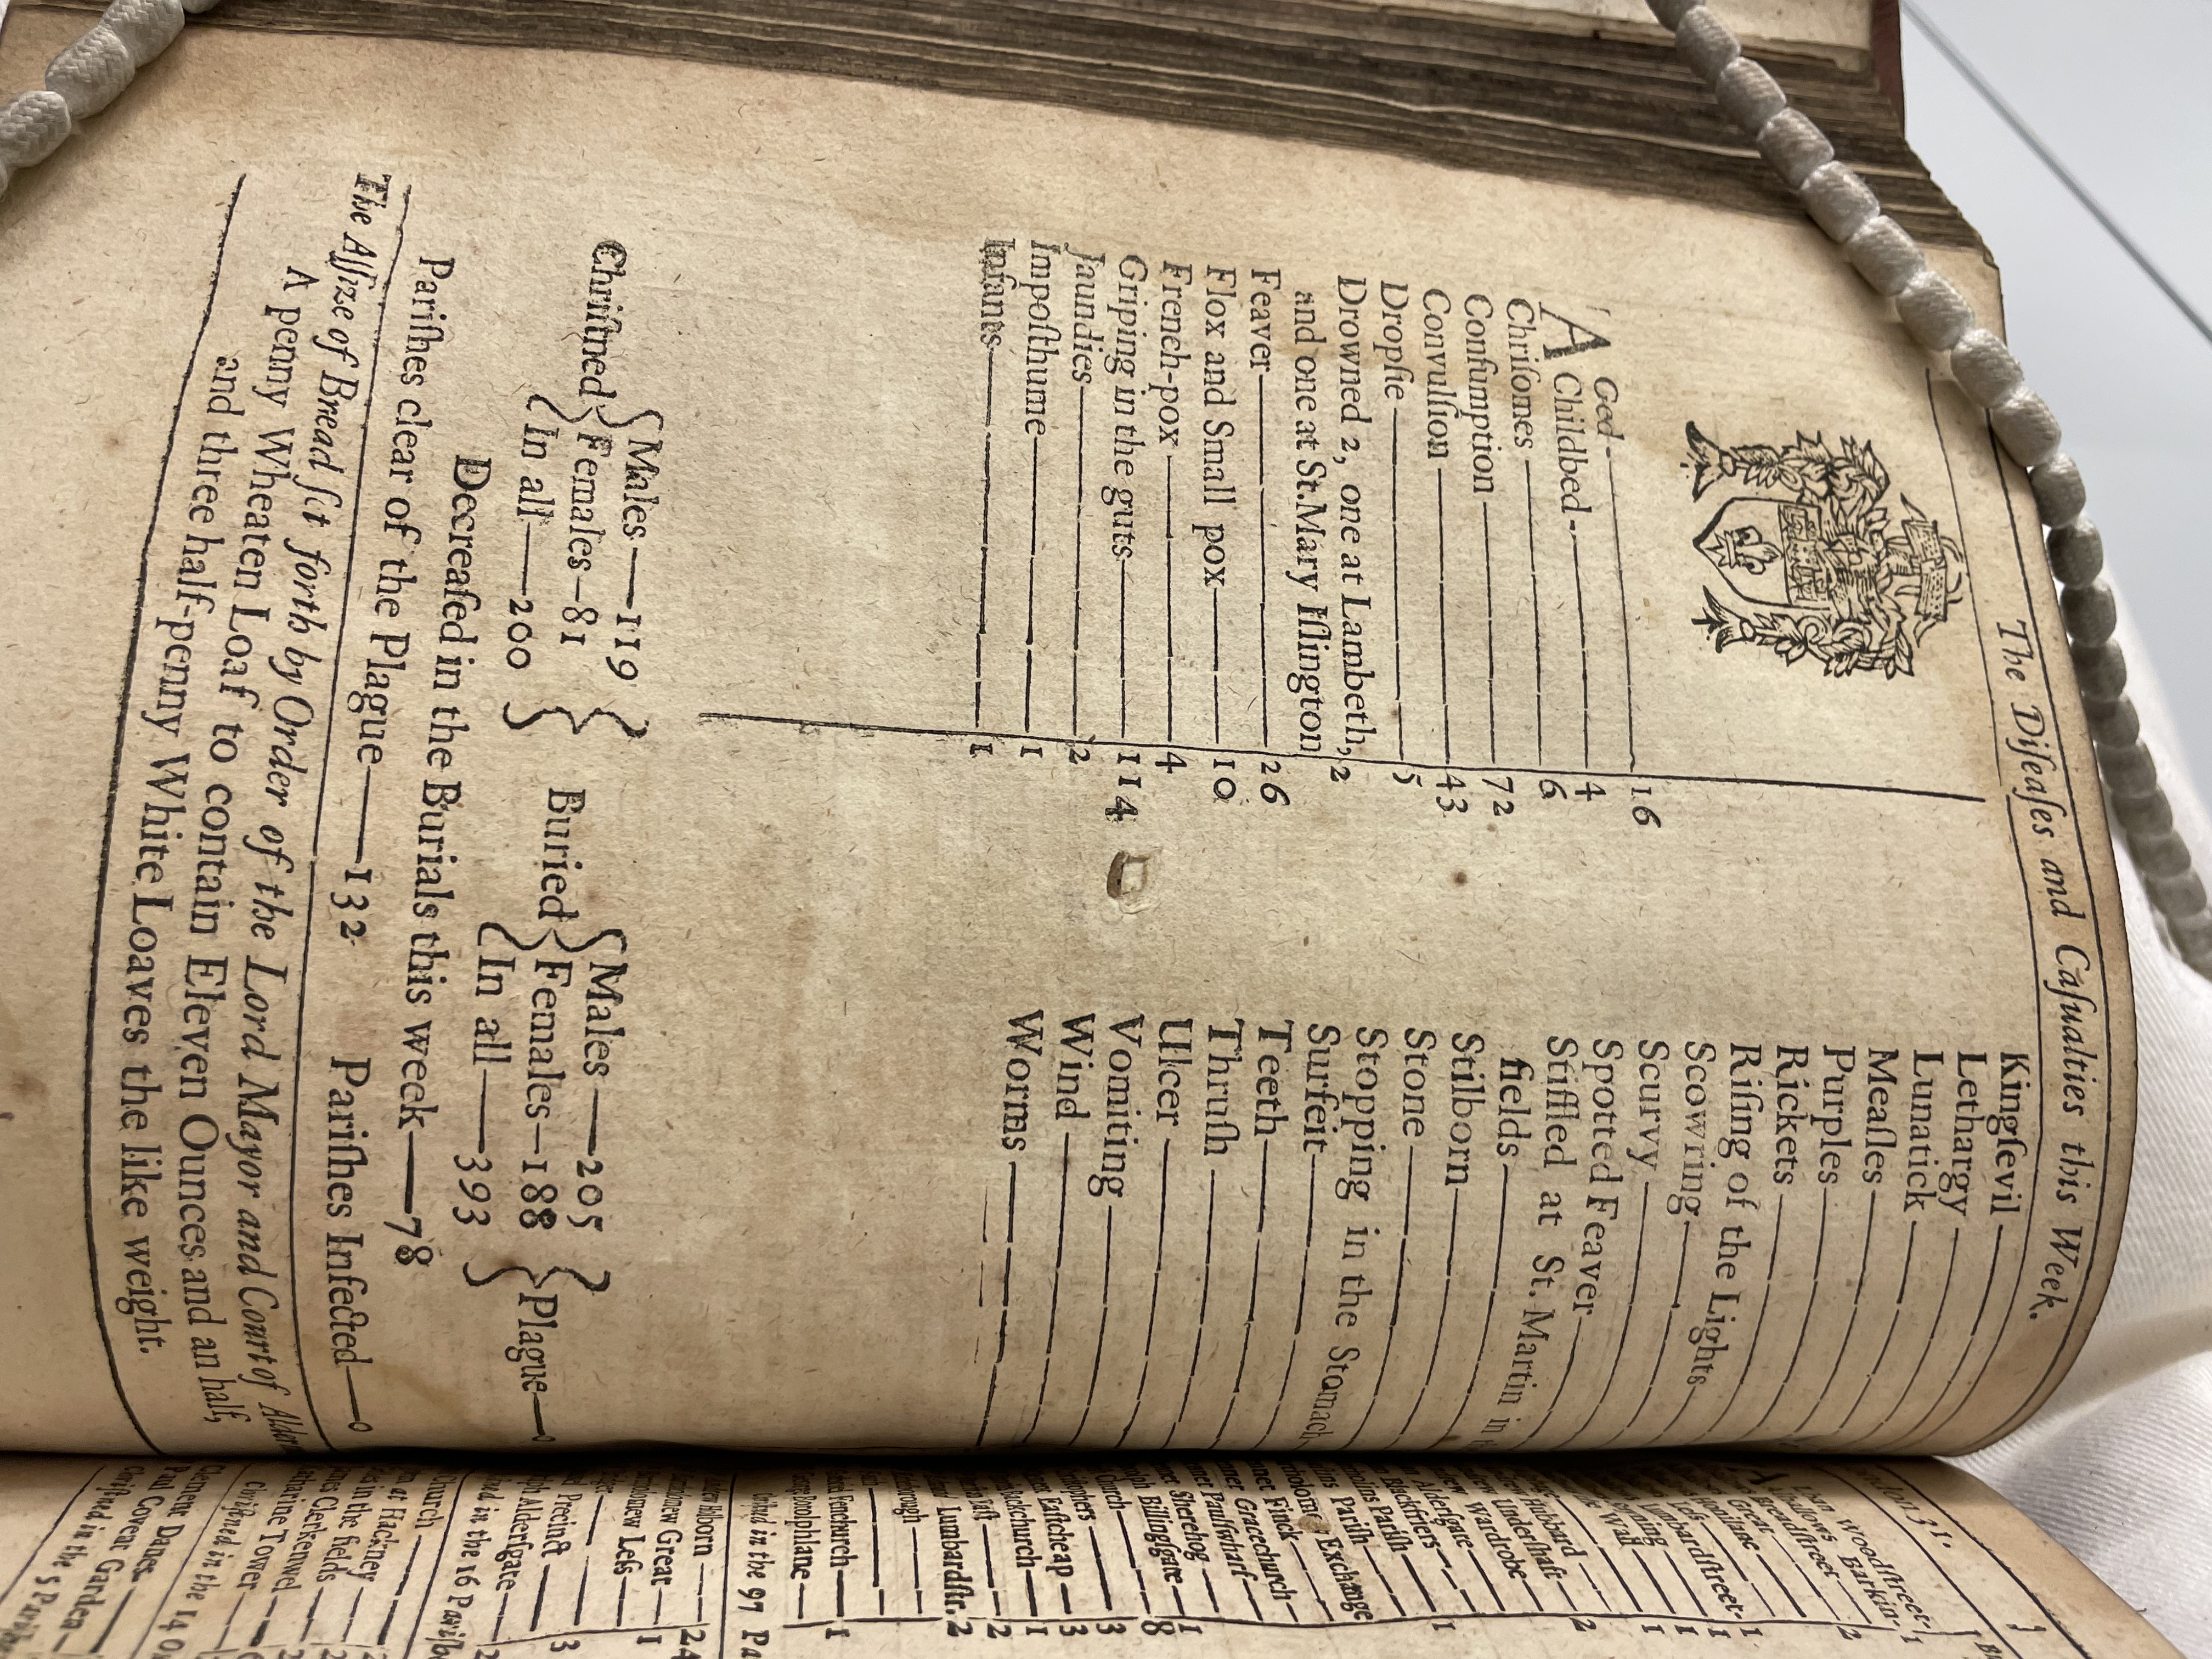 The Diſeaſes and Caſualties this Week.
Aged 16
Childbed 4
Chriſomes 6
Conſumption 72
Convulſion 43
Dropſie 5
Drowned 2, one at Lambeth,
and one at St.Mary Iſlington 2
Feaver 26
Flox and Small pox 10
French-pox 4
Griping in the guts 114
Jaundies 2
Impoſthume 1
Infants 1
Kingſevil
Lethargy
Lunatick
Meaſles
Purples
Rickets
Riſing of the Lights
Scowring
Scurvy
Spotted Feaver
Stiffled at St. Martin in
fields
Stilborn
Stone
Stopping in the Stomach
Surfeit
Teeth
Thruſh
Ulcer
Vomiting
Wind
Worms
Chriſtned
Males 119
Females 81
In all 200
Buried
Males 205
Females 188
In all 393
Plague 0
Decreaſed in the Burials this week 78
Pariſhes clear of the Plague 132 Pariſhes Infected 0
The Aſſize of Bread ſet forth by Order of the Lord Mayor and Court of
A penny Wheaten Loaf to contain Eleven Ounces and an half,
and three half-penny White Loaves the like weight.
Woodſtreet 1
Barkin 1
Breadſtreet 2
Great
Lumbardſtreet 1
Wall 1
Hubbard
Underſhaft 2
Wardrobe
Alderſgate
Blackfriers 1
Pariſh
Pariſh
Exchange
Finck
Gracechurch
Paulſwharf
Sherehog 1
Billingſgate 8
Church 3
Eaſtcheap 3
1
2
Lumbardſtr. 2
Fenchurch 1
Dolphlane
in the 97 Pa
24
Great 1
Leſs
Precinct 3
Alderſgate
in the 16
Church
at Hackney
in the fields
Clerkenwel
Tower
in the 14
Clement Danes
Paul Covent Garden
in the 5